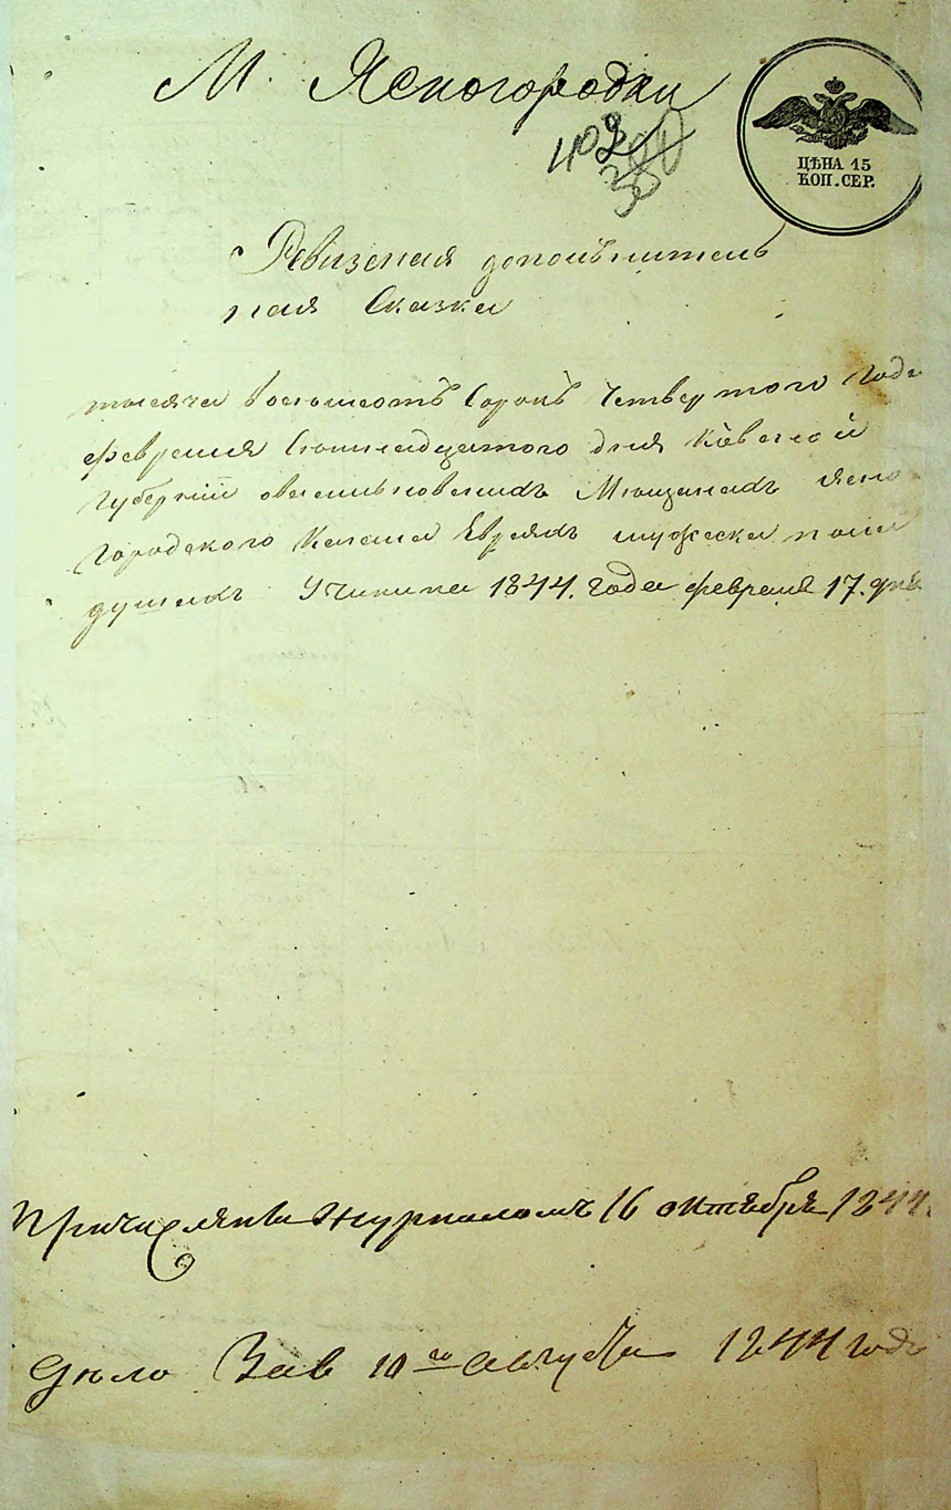 М. Ясногородки
402
ЦѢНА 15
КОП. СЕР.
Ревизская дополънитель
ная Сказка
тысяча восемьсотъ Сорокъ Четвертого Года
февраля Семнадцатого дня Кіевской
Губерніи о Мѣщанахъ Ясно
Городского Кагала Евреяхъ мужеска пола
душахъ Учинина 1844. Года февраля 17. дня
Причислены Журналомъ 16 октября 1844.
Дѣло Зав 10го августа 1844 года